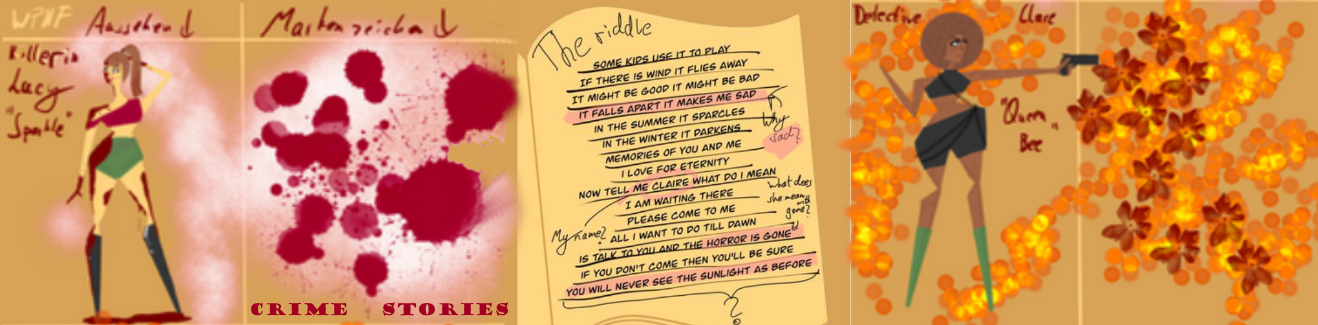 WPHP Aussehen ↓ Markenzeichen ↓
Killerin
Lucy
"Sparkle"
CRIME STORIES
The riddle
SOME KIDS USE IT TO PLAY
IF THERE IS WIND IT FLIES AWAY
IT MIGHT BE GOOD IT MIGHT BE BAD
IT FALLS APART IT MAKES ME SAD
IN THE SUMMER IT SPARCLES
IN THE WINTER IT DARKENS
MEMORIES OF YOU AND ME
I LOVE FOR ETERNITY
NOW TELL ME CLAIRE WHAT DO I MEAN
I AM WAITING THERE
PLEASE COME TO ME
ALL I WANT TO DO TILL DAWN
IS TALK TO YOU AND THE HORROR IS GONE
IF YOU DON'T COME THEN YOU'LL BE SURE
YOU WILL NEVER SEE THE SUNLIGHT AS BEFORE
Why
sad?
what does
she mean
with
gone?
My name?
?
Detective Clare
"Quen
Bee"